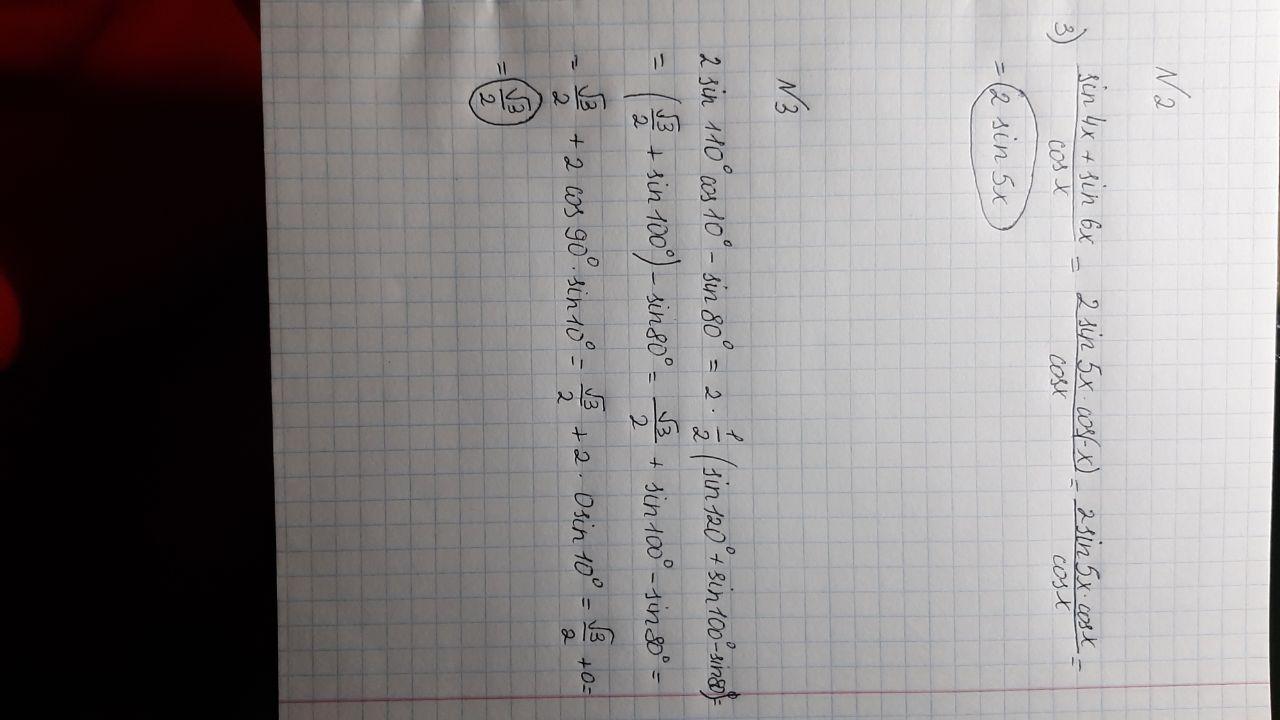 N2
3) (sin 4x + sin 6x)/(cos x) = (2 sin 5x · cos(-x))/(cosx) = (2 sin 5x · cosx)/(cosx) =
= 2 sin 5x
N3
2 sin 110° cos 10° - sin 80° = 2 · 1/2 (sin 120° + sin 100° - sin 80°) =
= (√3/2 + sin 100°) - sin 80° = √3/2 + sin 100° - sin 80° =
= √3/2 + 2 cos 90° · sin 10° = √3/2 + 2 · 0 sin 10° = √3/2 + 0 =
= √3/2